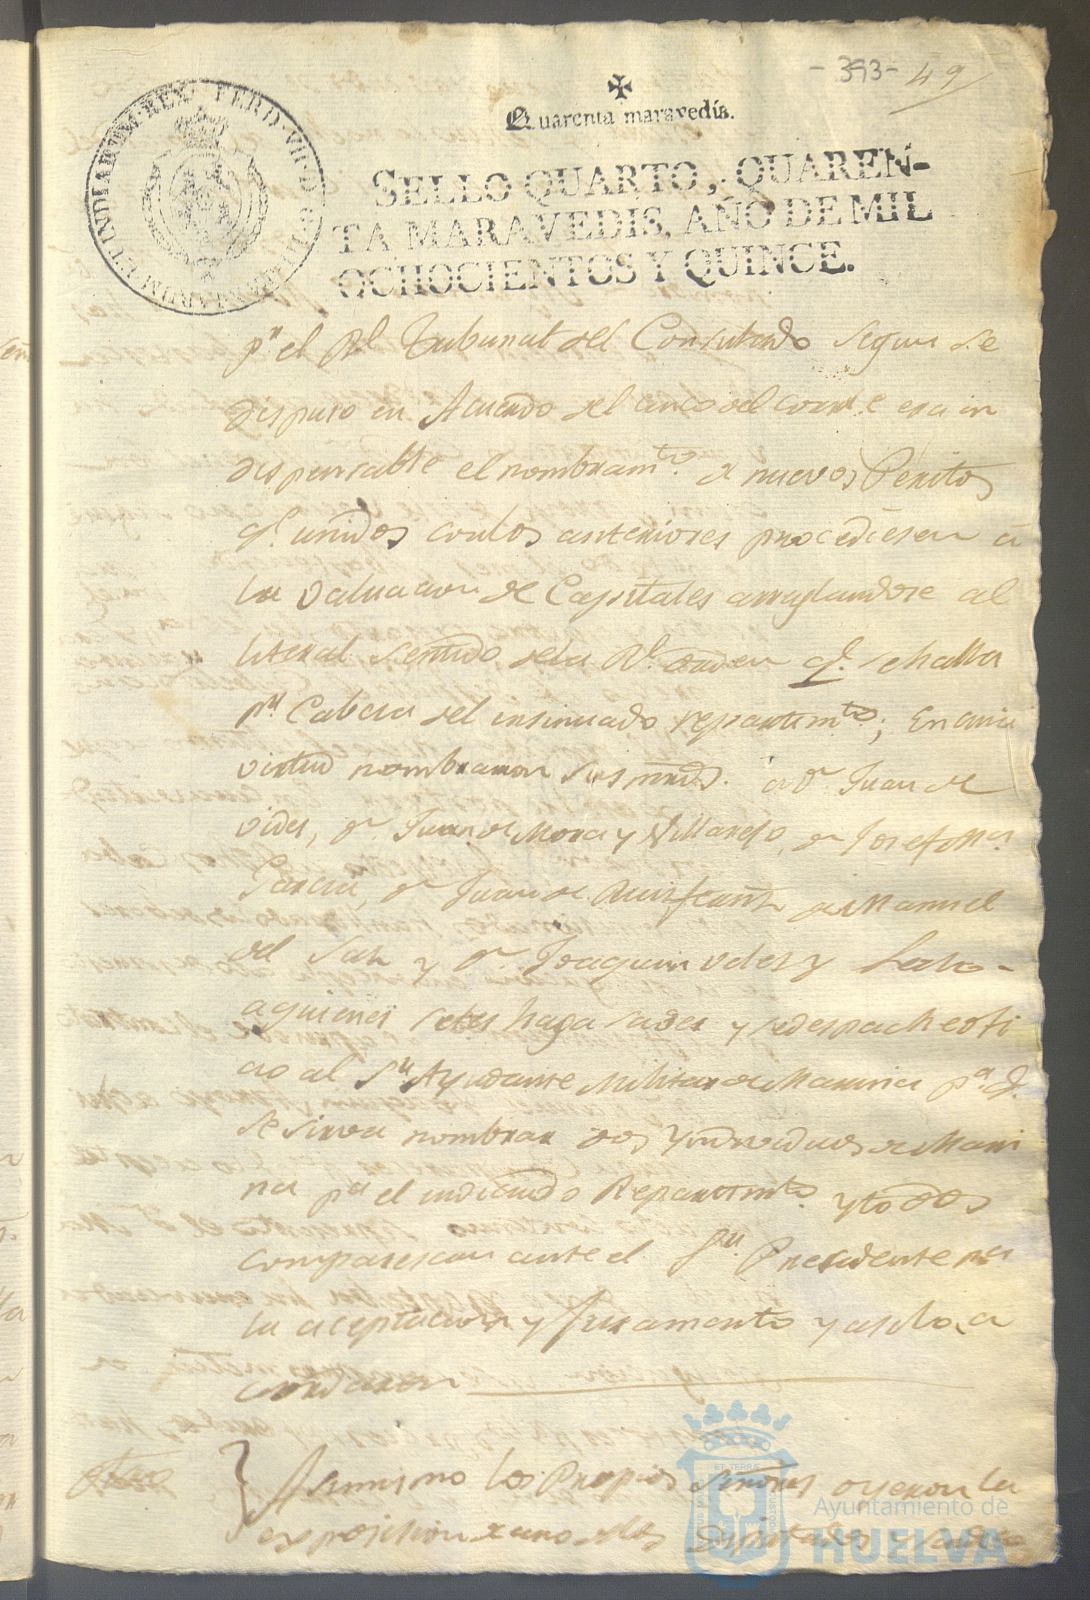 -393- 49
Quarenta maravedís.
FERD. VII. D. G. HISPANIARUM ET INDIARUM REX
SELLO QUARTO, QUAREN-
TA MARAVEDIS, AÑO DE MIL
OCHOCIENTOS Y QUINCE.
pr el Rl Tribunal del Consulado segun se
dispuso en Acuerdo del cinco del corrte era in
dispensable el nombramto. de nuevos Peritos
qe. unidos con los anteriores procediesen á
la valuacion de Capitales arreglandose al
literal sentido dela Rl. orden qe. se halla
pr Cabeza del insinuado repartimto; En cuia
virtud nombraron sus mrds. a Dn Juan de
vides, Dn Juan de Mora y Villarejo, Dn Josef Ma.
Garcia, Dn Juan de Dn Manuel
del Saz y Dn Joaquin Veles y
aquienes seles haga saver y se despache ofi
cio al Sr Ayudante Militar de Marina pa. q.
se sirva nombrar dos Yndividuos de Mari
na pa el indicado Repartimto. y todos
comparescan ante el Sr. Presidente pa
la aceptacion y Juramento y asi lo a
cordaron
Otro } Asimismo los Propios Señores oyeron la
exposicion de uno delos Diputados
Ayuntamiento de
HUELVA